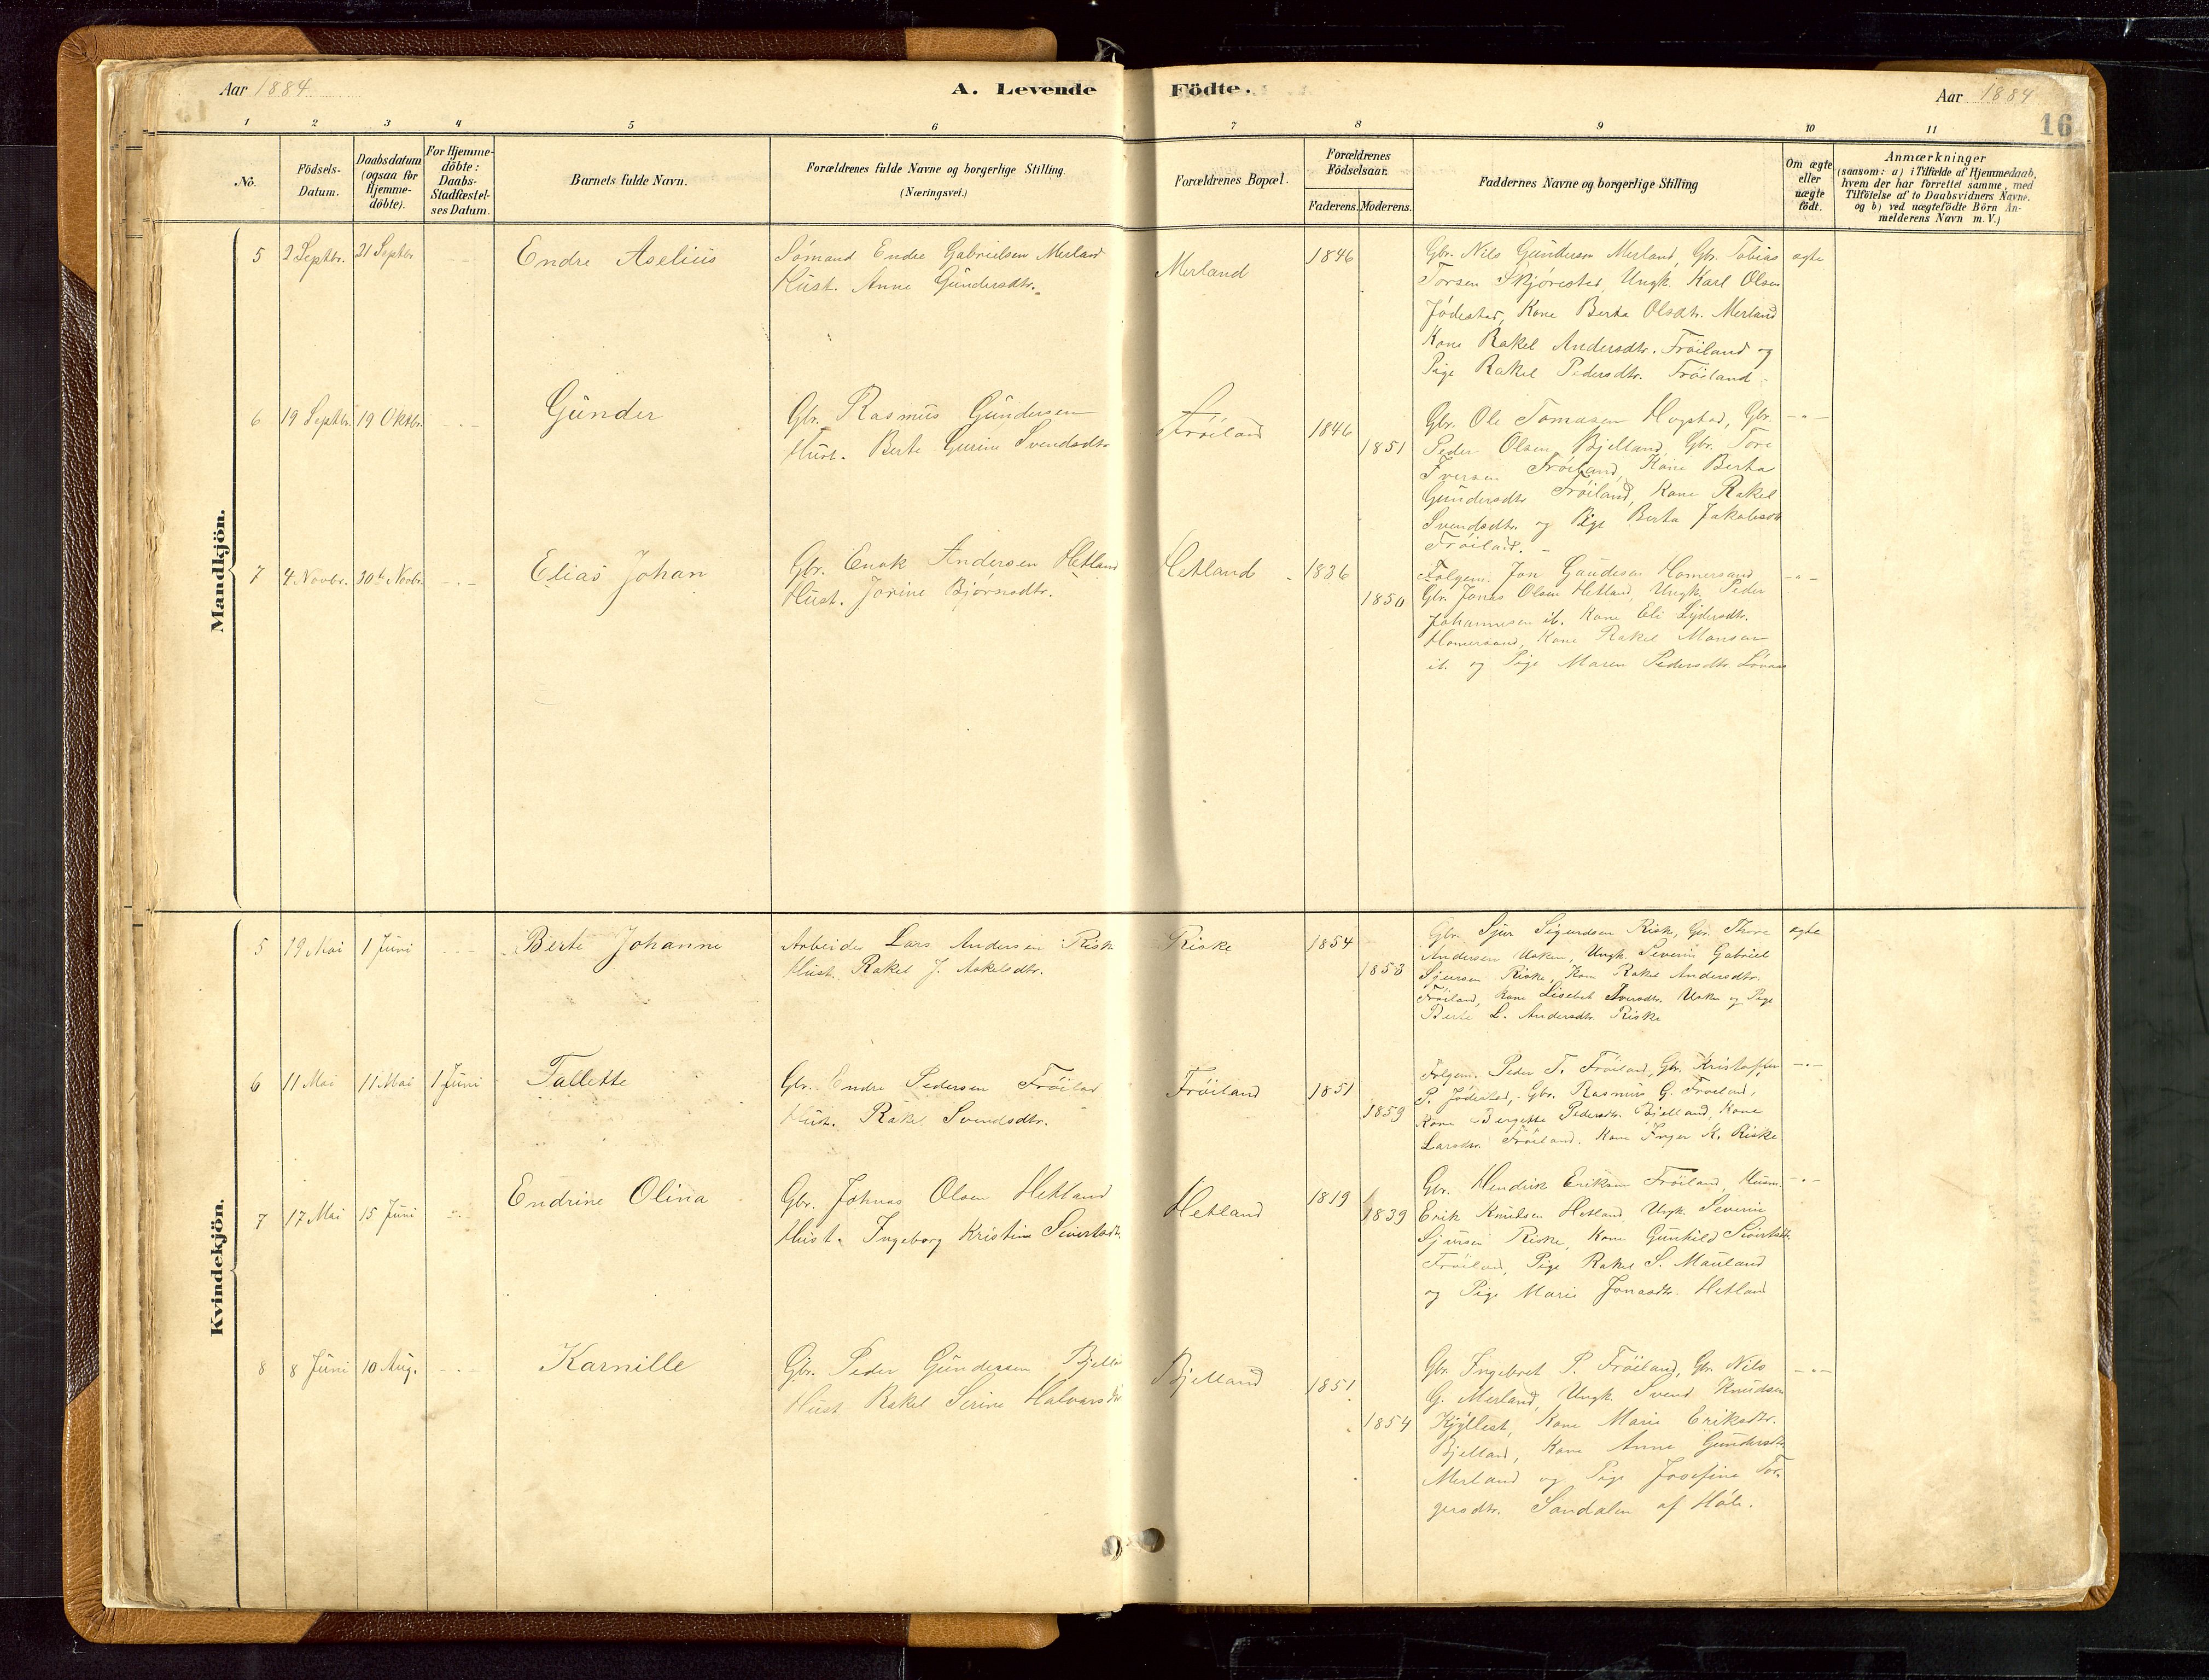 Aar 1884
A. Levende Födte.
Aar 1884
16
1 2 3 4 5 6 7 8 9 10 11
No.
Födsels-Datum.
Daabsdatum (ogsaa for Hjemme-döbte).
For Hjemme-döbte: Daabs-Stadfæstel-ses Datum.
Barnets fulde Navn.
Forældrenes fulde Navne og borgerlige Stilling.
(Næringsvei.)
Forældrenes Bopæl.
Forældrenes Födselsaar.
Faderens. Moderens.
Faddernes Navne og borgerlige Stilling
Om ægte eller uægte födt.
Anmærkninger
(saasom: a) i Tilfælde af Hjemmedaab, hvem der har forrettet samme, med Tilföielse af to Daabsvidners Navne. og b) ved uægtefödte Börn An-melderens Navn m. V.)
Mandkjön.
5 2 Septbr. 21 Septbr. Endre Aselius
Sømand Endre Gabrielsen Merland
Hust. Anne Gundersdtr.
Merland 1846
Gbr. Nils Gunderson Merland, Gbr. Tobias ægte
Torsen Skjørestad, Ungk. Karl Olsen
Jødestad, Kone Berta Olsdtr. Merland
Kone Rakel Andersdtr. Fröiland og
Pige Rakel Pedersdtr. Fröiland
6 19 Septbr. 19 Oktbr. Gunder
Gbr. Rasmus Gundersen
Hust. Berte Gurine Svendsdtr
Fröiland 1846 1851
Gbr. Ole Tomasen Hogstad, Gbr.
Peder Olsen Bjelland, Gbr. Tore
Iversen Fröiland, Kone Berta
Gundersdtr Fröiland, Kone Rakel
Svendsdtr. og Pige Berta Jakobsdtr
Fröiland.
7 4 Novbr. 30te Novbr. Elias Johan
Gbr. Enok Andersen Hetland
Hust. Jorine Bjørnsdtr.
Hetland 1836 1850
Folgem. Jon Gaudesen Homersand
Gbr. Jonas Olsen Hetland, Ungk. Peder
Johannesen ib. Kone Eli Lydersdtr.
Homersand, Kone Rakel Monsen
ib. og Pige Maren Pedersdtr.
Kvindekjön.
5 19 Mai 1 Juni Berte Johanne
Arbeider Lars Andersen Riske
Hust. Rakel J. Askelsdtr.
Riske 1854 1853
Gbr. Sjur Sigurdsen Riske, Gbr. Thore ægte
Andersen Usken, Ungk. Severin Gabriel
Sjursen Riske, Kone Rakel Andersdtr.
Fröiland, Kone Lisebet Iversdtr. Usken og Pige
Berte L. Andersdtr. Riske
6 11 Mai 11 Mai 1 Juni Tallette
Gbr. Endre Pedersen Fröiland
Hust. Rakel Svendsdtr.
Fröiland 1851 1859
Folgem. Peder T. Fröiland, Gbr. Kristoffer
P. Jödestad, Gbr. Rasmus G. Froiland,
Kone Bergitte Pedersdtr. Bjelland, Kone
Larsdtr. Fröiland. Kone Inger K. Riske
7 17 Mai 15 Juni Endrine Olina
Gbr. Johnas Olsen Hetland
Hust. Ingeborg Kristine Sivertsdtr.
Hetland 1819 1839
Gbr. Hendrik Eriksen Fröiland, Husm.
Erik Knudsen Hetland, Ungk. Severin
Sjursen Riske, Kone Gunhild Sivertsdtr.
Fröiland, Pige Rakel S. Mauland
og Pige Marie Jonasdtr. Hetland
8 8 Juni 10 Aug. Karnille
Gbr. Peder Gundersen Bjella
Hust Rakel Serine Halvorsdtr
Bjelland 1851 1854
Gbr. Ingebret P. Fröiland, Gbr. Nils
G. Merland, Ungk. Svend Knudsen
Kjyllest, Kone Marie Eriksdtr.
Bjelland, Kone Anne Gundersdtr
Merland og Pige Josefine Tor-
gersdtr. Sandalen af Höle.